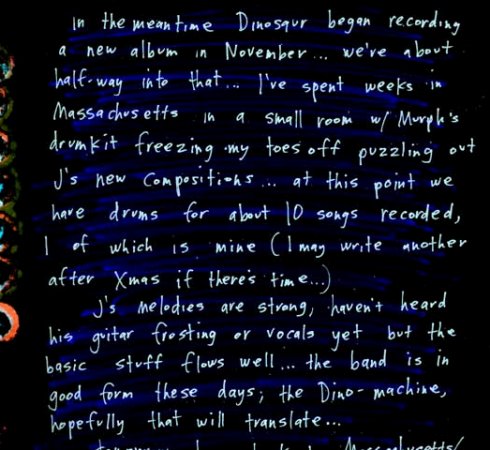 in the meantime Dinosaur began recording
a new album in November... we've about
half-way into that... I've spent weeks in
Massachusetts in a small room w/ Murph's
drumkit freezing my toes off puzzling out
J's new compositions... at this point we
have drums for about 10 songs recorded,
1 of which is mine (I may write another
after Xmas if there's time...)
J's melodies are strong, haven't heard
his guitar frosting or vocals yet but the
basic stuff flows well... the band is in
good form these days; the Dino-machine,
hopefully that will translate...